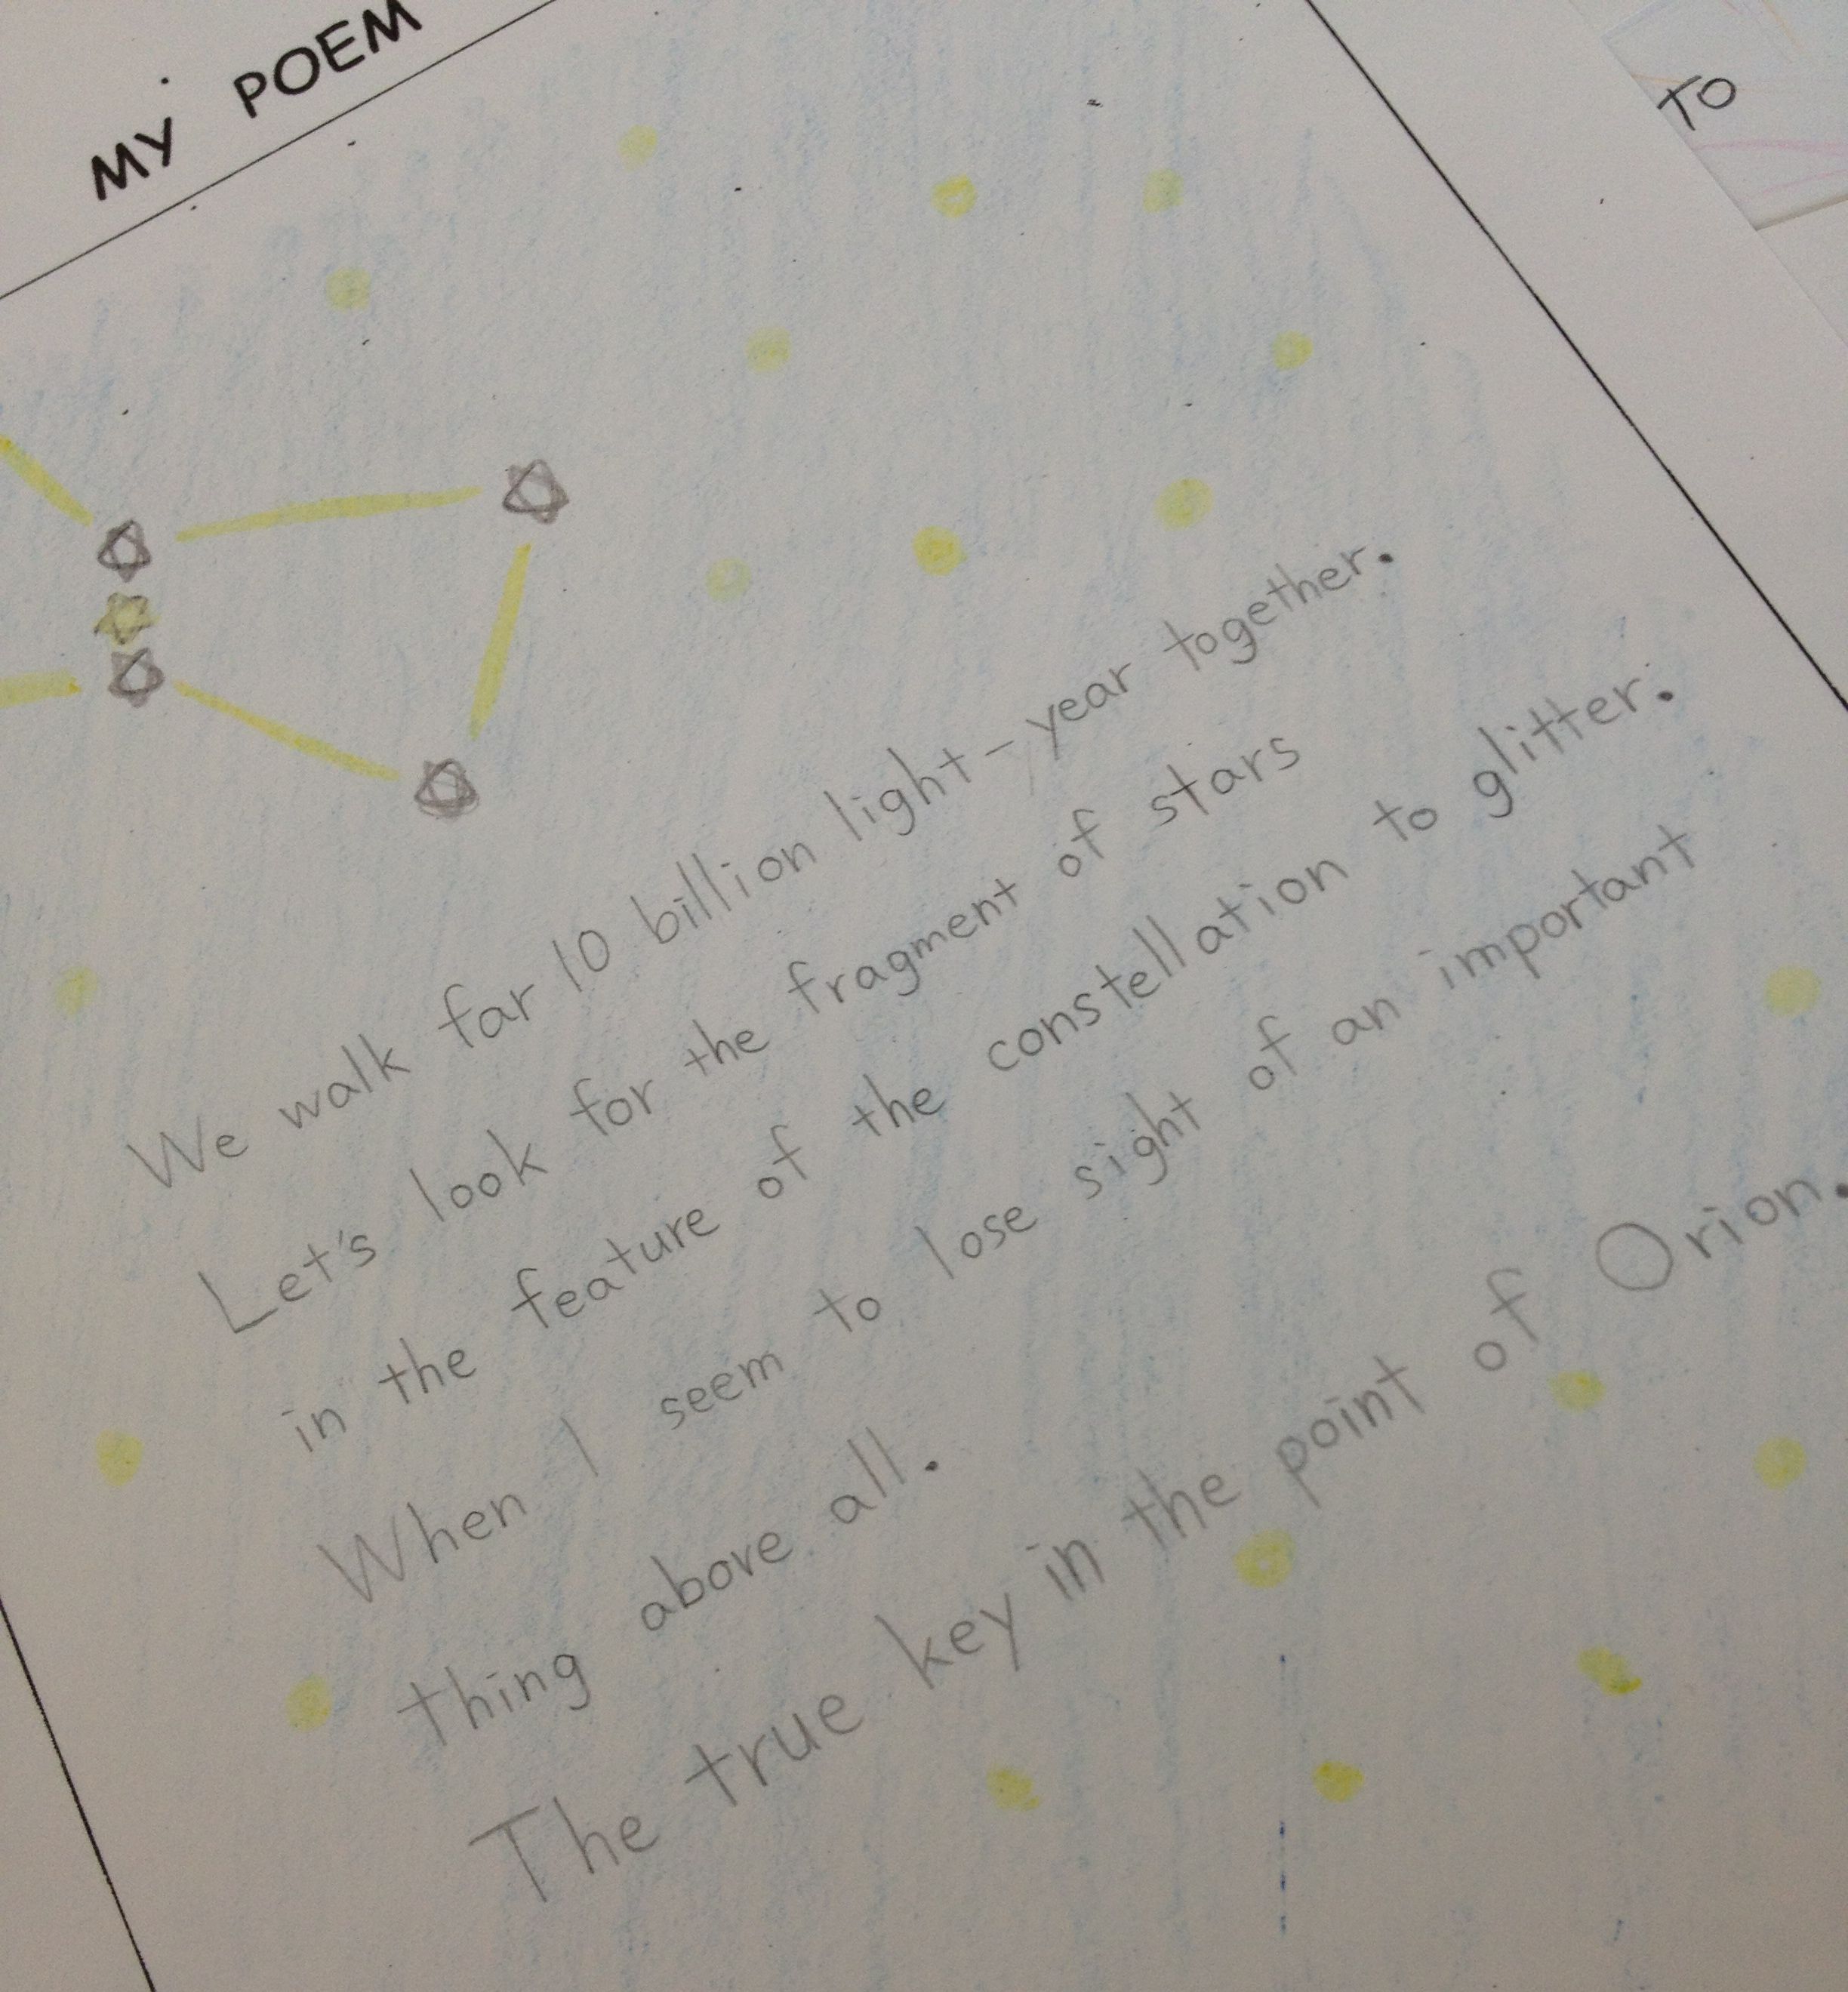 MY POEM
TO
We walk far 10 billion light-year together.
Let's look for the fragment of stars
in the feature of the constellation to glitter.
When I seem to lose sight of an important
thing above all.
The true key in the point of Orion.